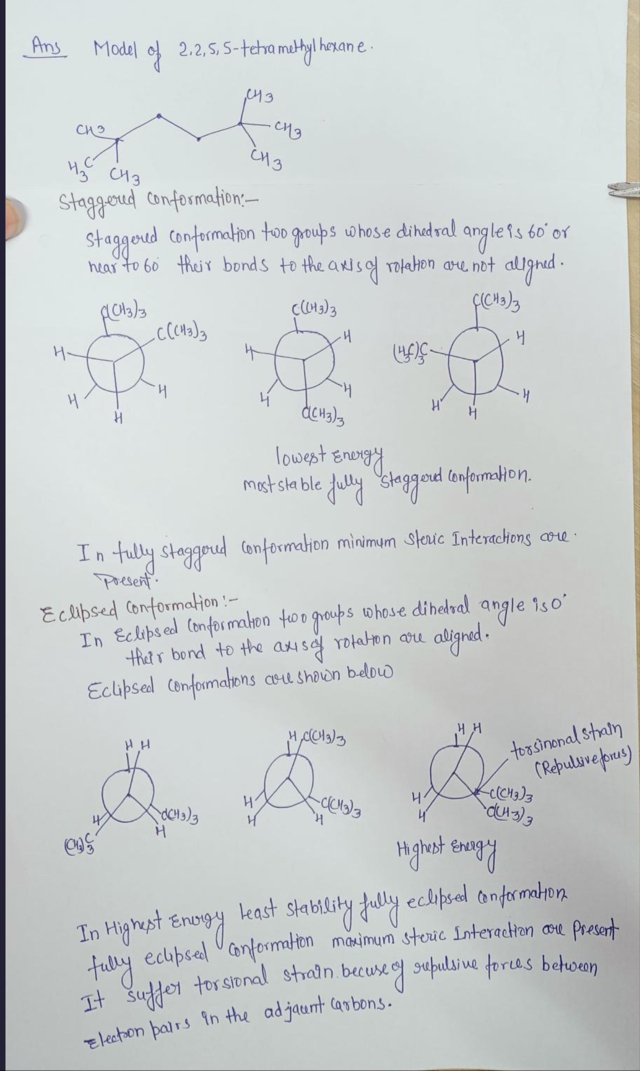 Ans Model of 2,2,5,5-tetramethylhexane.
CH3
CH3
CH3
CH3
H3C CH3
Staggered Conformation:-
Staggered Conformation two groups whose dihedral angle is 60° or
near to 60 their bonds to the axis of rotation are not aligned.
C(CH3)3
C(CH3)3
H
H
H
H
C(CH3)3
H
H
H
H
C(CH3)3
C(CH3)3
(H3C)3C
H
H
H
H
lowest Energy
most stable fully Staggered Conformation.
In fully staggered Conformation minimum Steric Interactions are
Present.
Eclipsed Conformation:-
In Eclipsed Conformation two groups whose dihedral angle is 0°
their bond to the axis of rotation are aligned.
Eclipsed Conformations are shown below
H H
H
(CH3)3C
C(CH3)3
H
H C(CH3)3
H
H
C(CH3)3
H
H H
torsinonal strain
(Repulsive forces)
H
H
C(CH3)3
C(CH3)3
Highest Energy
In Highest Energy Least Stability fully eclipsed Conformation
fully eclipsed Conformation maximum Steric Interaction are Present
It suffer torsional strain becuse of repulsive forces between
Electron pairs in the adjaunt Carbons.